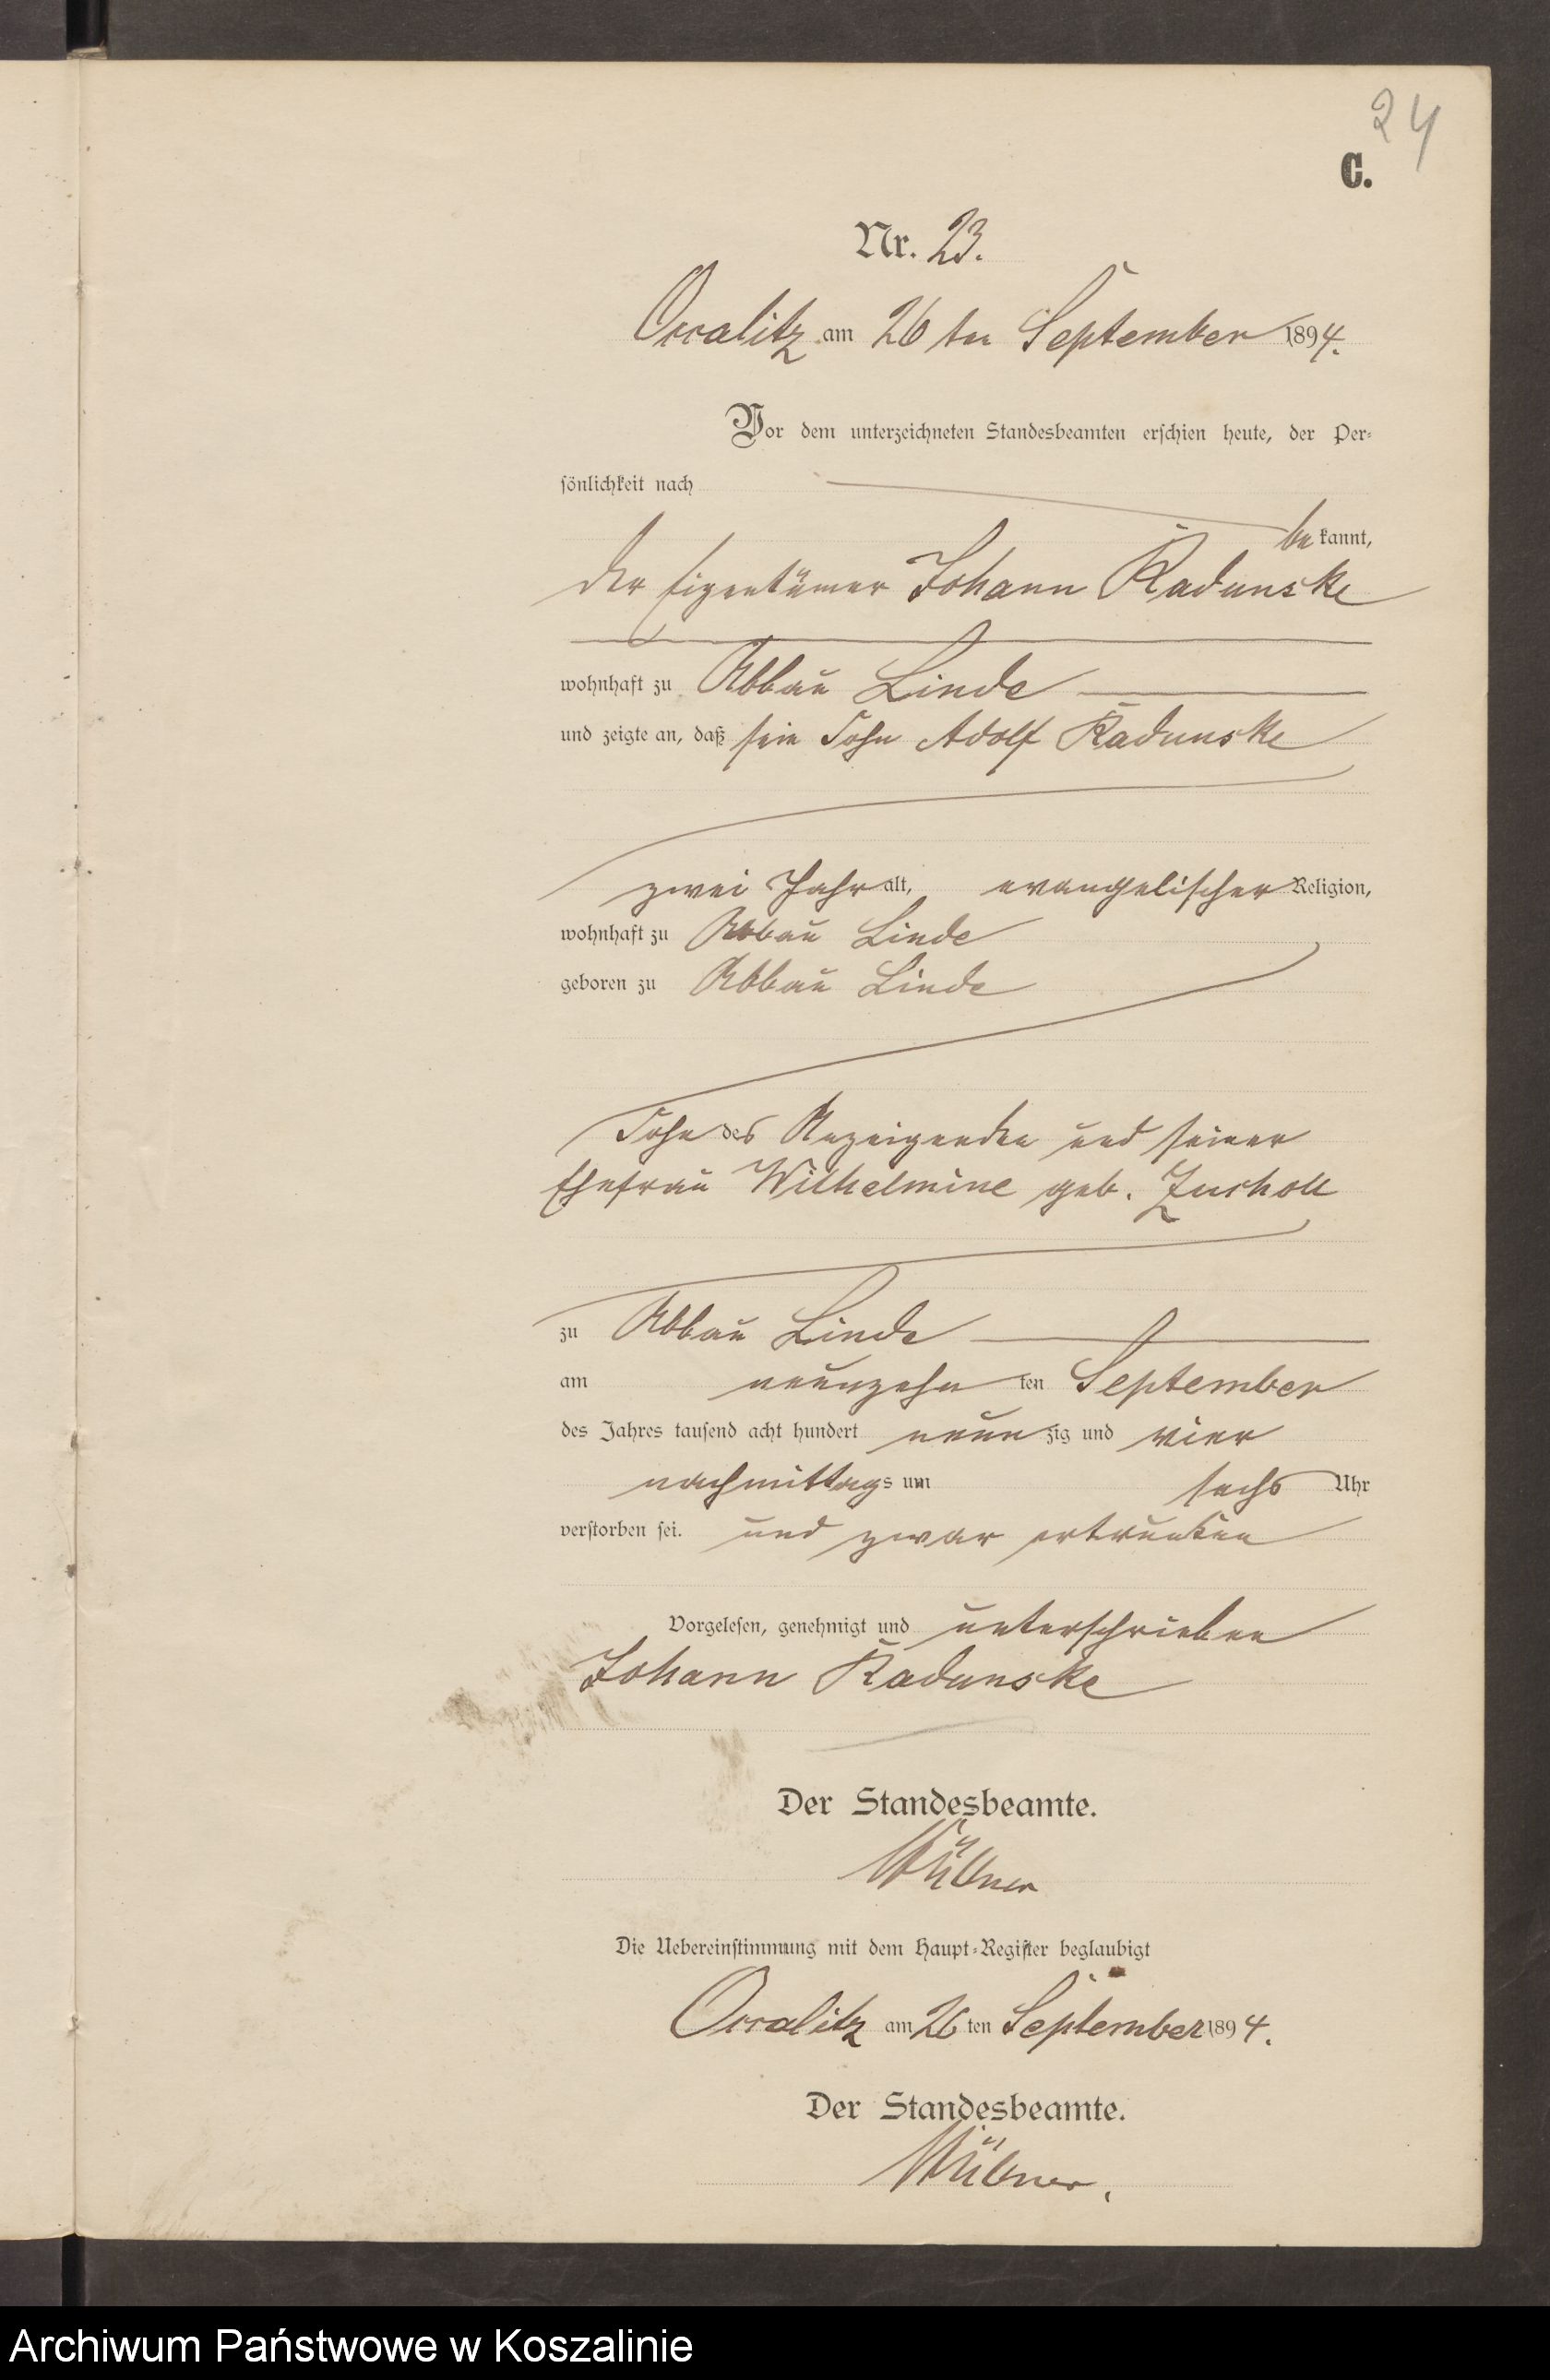 24
C.
Nr. 23.
Ossalitz am 26 ten September 1894.
Vor dem unterzeichneten Standesbeamten erschien heute, der Per-
sönlichkeit nach
be kannt,
der Eigentümer Johann Radunske
wohnhaft zu Abbau Linde
und zeigte an, daß sein Sohn Adolf Radunske
zwei Jahr alt, evangelischer Religion,
wohnhaft zu Abbau Linde
geboren zu Abbau Linde
Sohn des Anzeigenden und seiner
Ehefrau Wilhelmine geb. Zuscholl
zu Abbau Linde
am neunzehn ten September
des Jahres tausend acht hundert neun zig und vier
nachmittags um sechs Uhr
verstorben sei. und zwar ertrunken
Vorgelesen, genehmigt und unterschrieben
Johann Radunske
Der Standesbeamte.
Die Uebereinstimmung mit dem Haupt-Register beglaubigt
Ossalitz am 26 ten September 1894.
Der Standesbeamte.
Archiwum Państwowe w Koszalinie